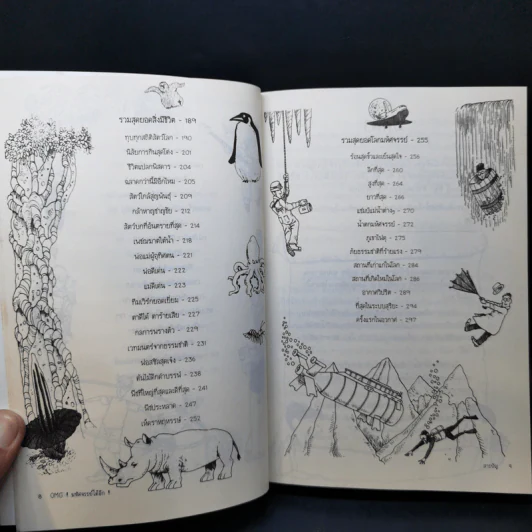 รวมสุดยอดสิ่งมีชีวิต - 189
ทุบทุกสถิติสัตว์โลก - 190
นิสัยการกินสุดโต่ง - 201
ชีวิตแปลกพิสดาร - 203
ฉลาดกว่านี้มีอีกไหม - 205
สัตว์ใกล้สูญพันธุ์ - 209
กล้าหาญชาญชัย - 212
สัตว์บกที่อันตรายที่สุด - 214
เพชฌฆาตใต้น้ำ - 218
พ่อแม่ผู้อุทิศตน - 221
พ่อดีเด่น - 222
แม่ดีเด่น - 223
ทีมเวิร์กยอดเยี่ยม - 225
ตาดีได้ ตาร้ายเสีย - 227
กลการพรางตัว - 229
เวทมนตร์จากธรรมชาติ - 231
พ่นพิษสุดเจ๋ง - 236
ต้นไม้ดึกดำบรรพ์ - 238
พืชที่ใหญ่ที่สุดและดีที่สุด - 241
พืชประหลาด - 247
เห็ดราหฤหรรษ์ - 252
8 OMG ! มหัศจรรย์ได้อีก !
รวมสุดยอดโลกมหัศจรรย์ - 255
ร้อนสุดขั้วและเย็นสุดใจ - 256
ลึกที่สุด - 260
สูงที่สุด - 264
ยาวที่สุด - 268
แชมป์แม่น้ำต่างๆ - 270
น้ำตกมหัศจรรย์ - 271
ภูเขาไฟดุ - 275
ภัยธรรมชาติที่ร้ายแรง - 279
สถานที่เก่าแก่ในโลก - 286
สถานที่เกิดใหม่ในโลก - 288
อากาศวิปริต - 289
ที่สุดในระบบสุริยะ - 294
ครั้งแรกในอวกาศ - 297
สารบัญ 9